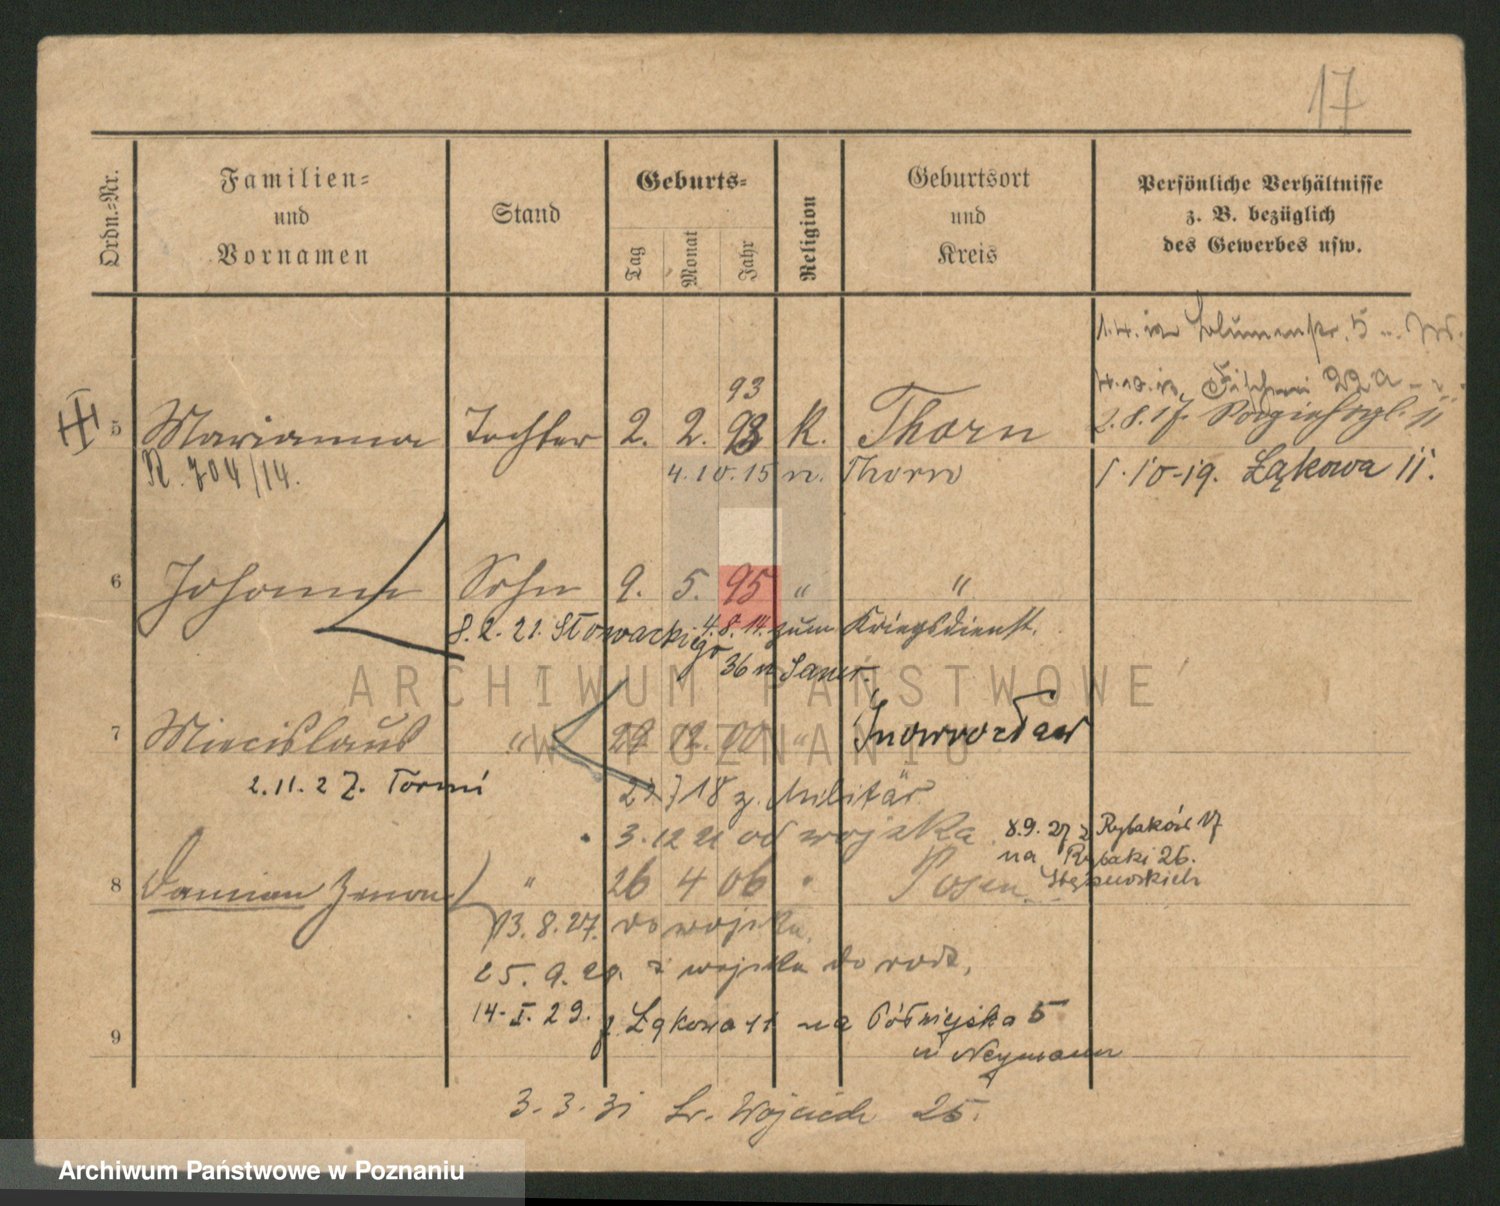 17
Ordn.=Nr.
Familien=
und
Vornamen
Stand
Geburts=
Tag
Monat
Jahr
Religion
Geburtsort
und
Kreis
Persönliche Verhältnisse
z. B. bezüglich
des Gewerbes usw.
1.4. Blumenstr. 5
Fischerei 22a
93
5 Marianna Tochter 2. 2. 93 K. Thorn 2.8.17. 11
R. 704/14. 4.10.15 n. Thorn 1.10-19. Łąkowa 11.
6 Johann Sohn 9. 5. 95 " "
8.2.21. Słowackiego 4.8.14. zum Kriegsdienst.
36
7 Miecislaus " 12. 00 " Inowrocław
2.11.27. Toruń
18 z. Militär
3.12 21 od wojska 8.9.27 z Rybaków 17
na Rybaki 26.
8 Damian Zenon " 26 4 06 " Posen
13.8.27. do wojska.
25.9. z wojska do rodz.
14-I.29. z Łąkowa 11 na Półwiejska 5
9
u Neymann
3.3.31 Św. Wojciech 25.
ARCHIWUM PAŃSTWOWE
W POZNANIU
Archiwum Państwowe w Poznaniu